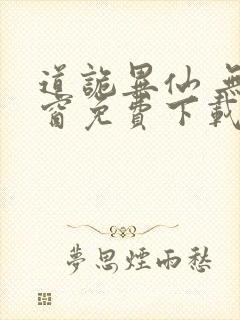 道詭異仙 無
窗免費下載
夢思煙雨愁